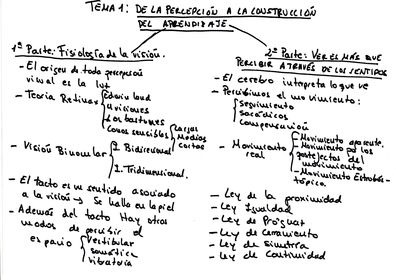 TEMA 1: DE LA PERCEPCIÓN A LA CONSTRUCCIÓN
DEL APRENDIZAJE
1ª Parte: Fisiología de la visión.
- El origen de toda percepción
visual es la luz
- Teoría Retinex
Edwin land
4 visiones
Los bastones
Conos sensibles
Largas
Medias
cortas
- Visión Binocular
I. Bidireccional
I. Tridimensional.
- El tacto es un sentido asociado
a la visión → Se halla en la piel
- Además del tacto Hay otros
modos de percibir el
espacio
Vestibular
somática
vibratoria
2ª Parte: VER ES MÁS QUE
PERCIBIR A TRAVÉS DE LOS SENTIDOS
- El cerebro interpreta lo que ve
- Percibimos el movimiento:
seguimiento
sacádicos
compensación
- Movimiento
real
Movimiento aparente.
Movimiento por los
del movimiento
- Movimiento
- Ley de la proximidad
- Ley Igualdad
- Ley de
- Ley de Cerramiento
- Ley de Simetría
- Ley de Continuidad